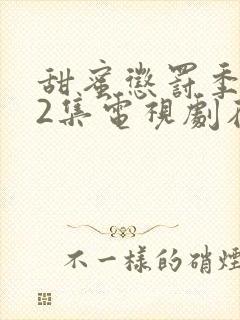 甜蜜懲罰季
2集電視劇在
不一樣的硝煙